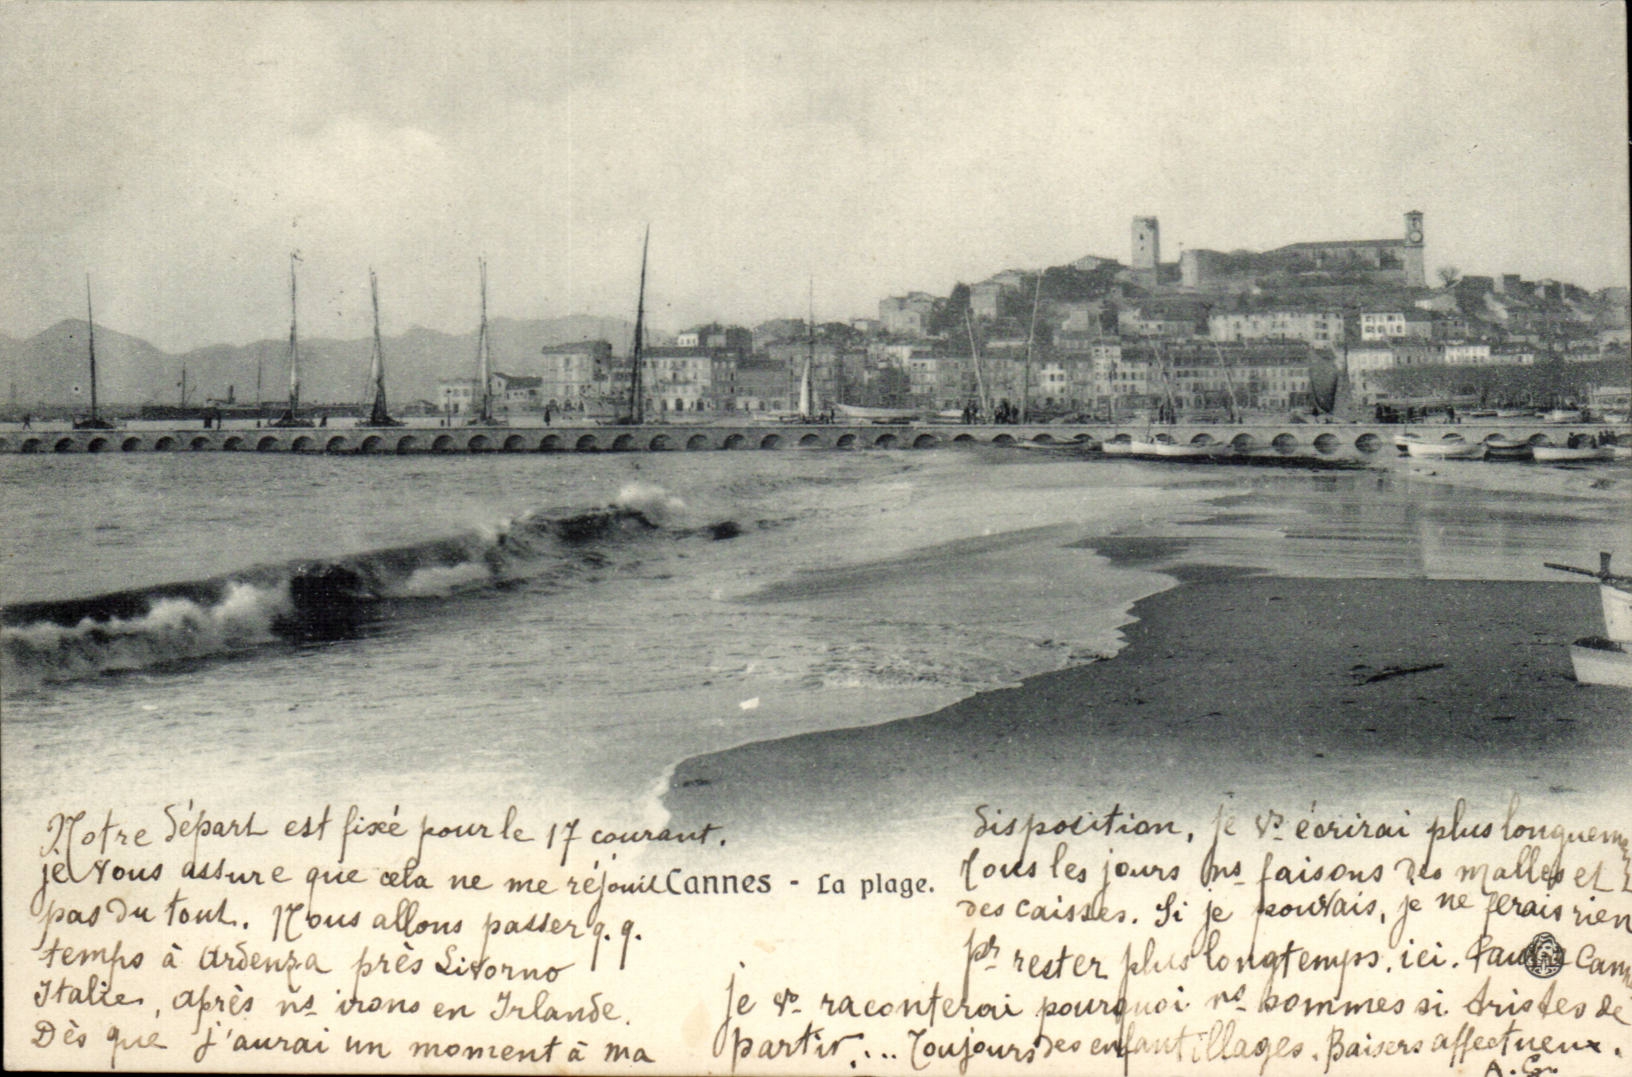 Notre départ est fixé pour le 17 courant.
je vous assure que cela ne me réjouit
pas du tout. Nous allons passer q.q.
temps à Ardenza près Livorno
Italie, après ns irons en Irlande.
Dès que j'aurai un moment à ma
Cannes - La plage.
disposition, je vs écrirai plus longuem
Tous les jours ns faisons des malles et
des caisses. Si je pouvais, je ne ferais rien
pr rester plus longtemps. ici.
je vs raconterai pourquoi ns sommes si tristes de
partir. ... Toujours des enfantillages. Baisers affectueux.
A. G.